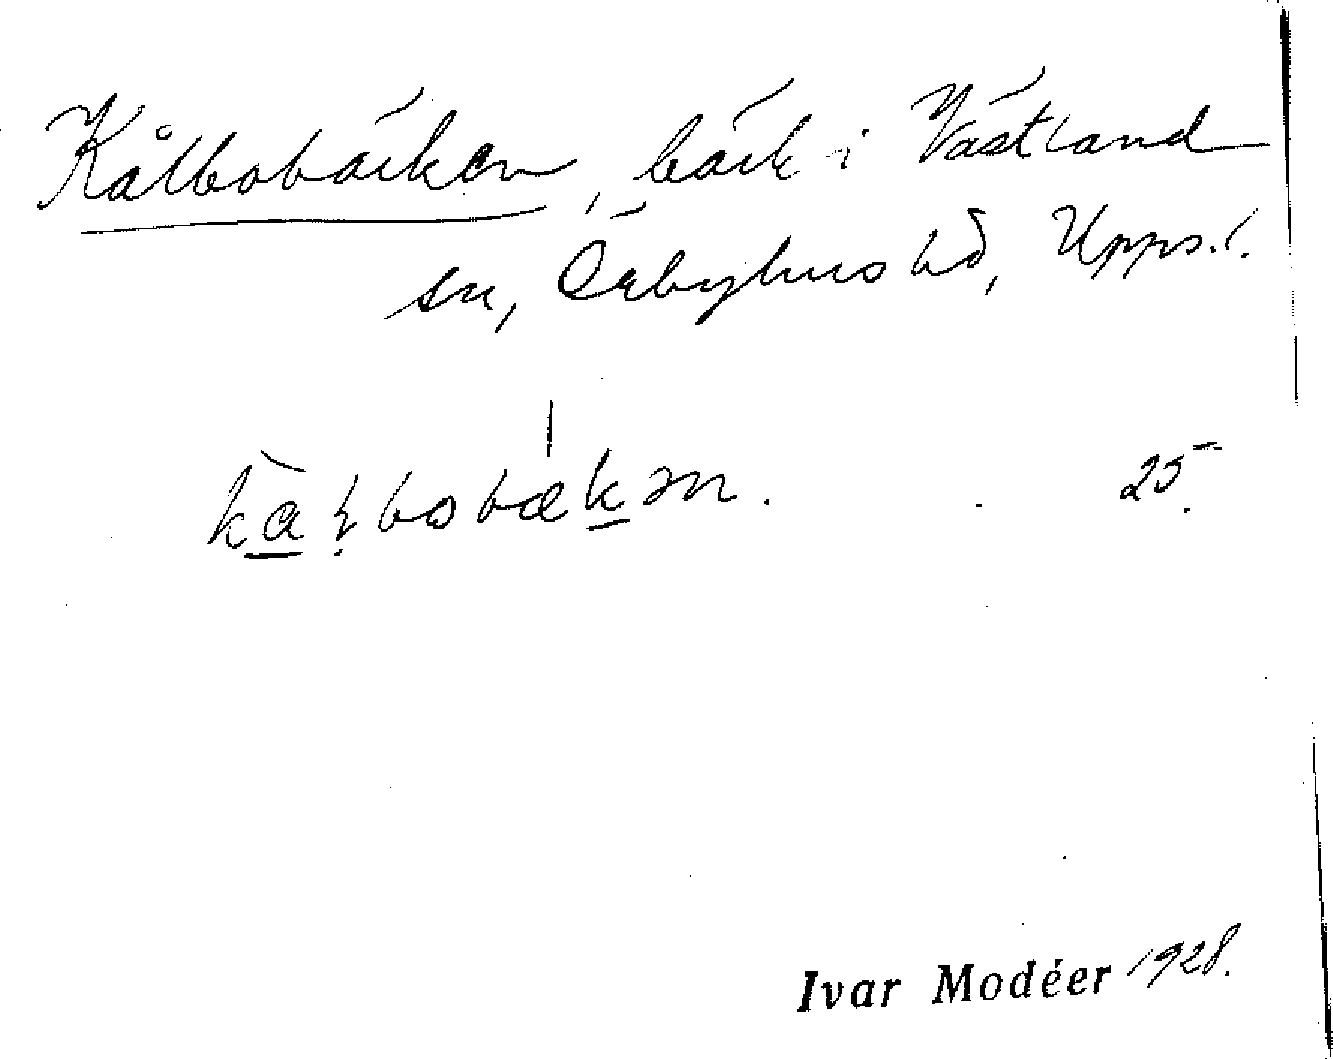 Kålbobäcken, bäck i Västland
sn, Örbyhus hd, Upps. l.
kạ̄̀ḷbobækən. 25.
Ivar Modéer 1928.